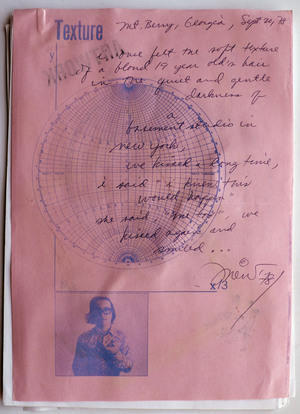 Texture
Mt. Berry, Georgia, Sept 20, 78
y
i once felt the soft texture
of a blond 19 year old's hair
in the quiet and gentle
darkness of
a
basement studio in
new york,
we kissed a long time,
i said "i knew this
would happen"
she said "me too", we
kissed again and
smiled ...
©
'78
x13